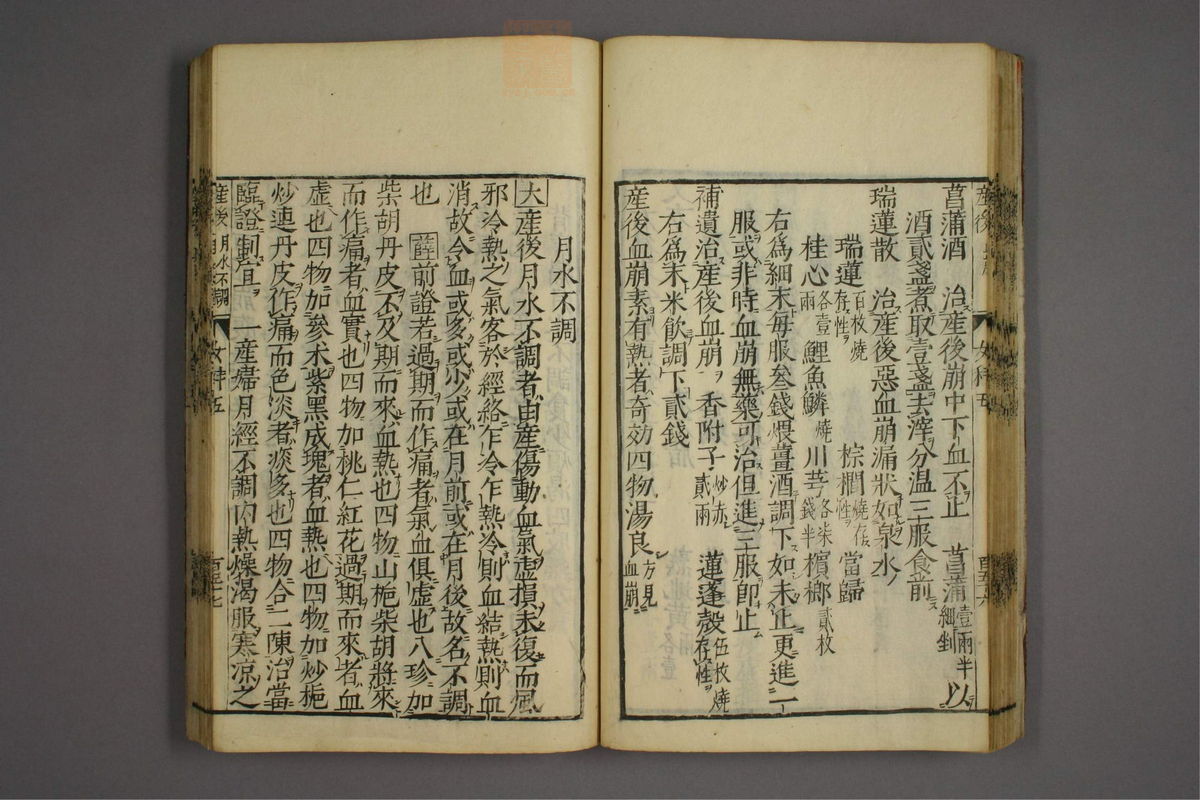 菖蒲酒 治産後崩中下血不止 菖蒲壹兩半細剉 以
酒貳盞煮取壹盞去滓分温三服食前
瑞蓮散 治産後惡血崩漏狀如泉水
瑞蓮百枚燒存性 棕櫚燒存性 當歸
桂心各壹兩 鯉魚鱗燒 川芎各柒錢半 檳榔貳枚
右爲細末毎服叁錢煨薑酒調下如未止更進一
服或非時血崩無藥可治但進三服即止
補遺治産後血崩 香附子炒赤貳兩 蓮蓬殼伍枚燒存性
右爲末米飲調下貳錢
産後血崩素有熱者奇効四物湯良方見血崩
産後 女科五 百五十六
月水不調
大産後月水不調者由産傷動血氣虛損未復而風
邪冷熱之氣客於經絡乍冷乍熱冷則血結熱則血
消故令血或多或少或在月前或在月後故名不調
也 薛前證若過期而作痛者氣血俱虛也八珍加
柴胡丹皮不及期而來血熱也四物山梔柴胡將來
而作痛者血實也四物加桃仁紅花過期而來者血
虛也四物加參术紫黑成塊者血熱也四物加炒梔
炒連丹皮作痛而色淡者痰多也四物合二陳治當
臨證制宜 一産婦月經不調内熱燥渴服寒凉之
産後 月水不調 女科五 百五十七